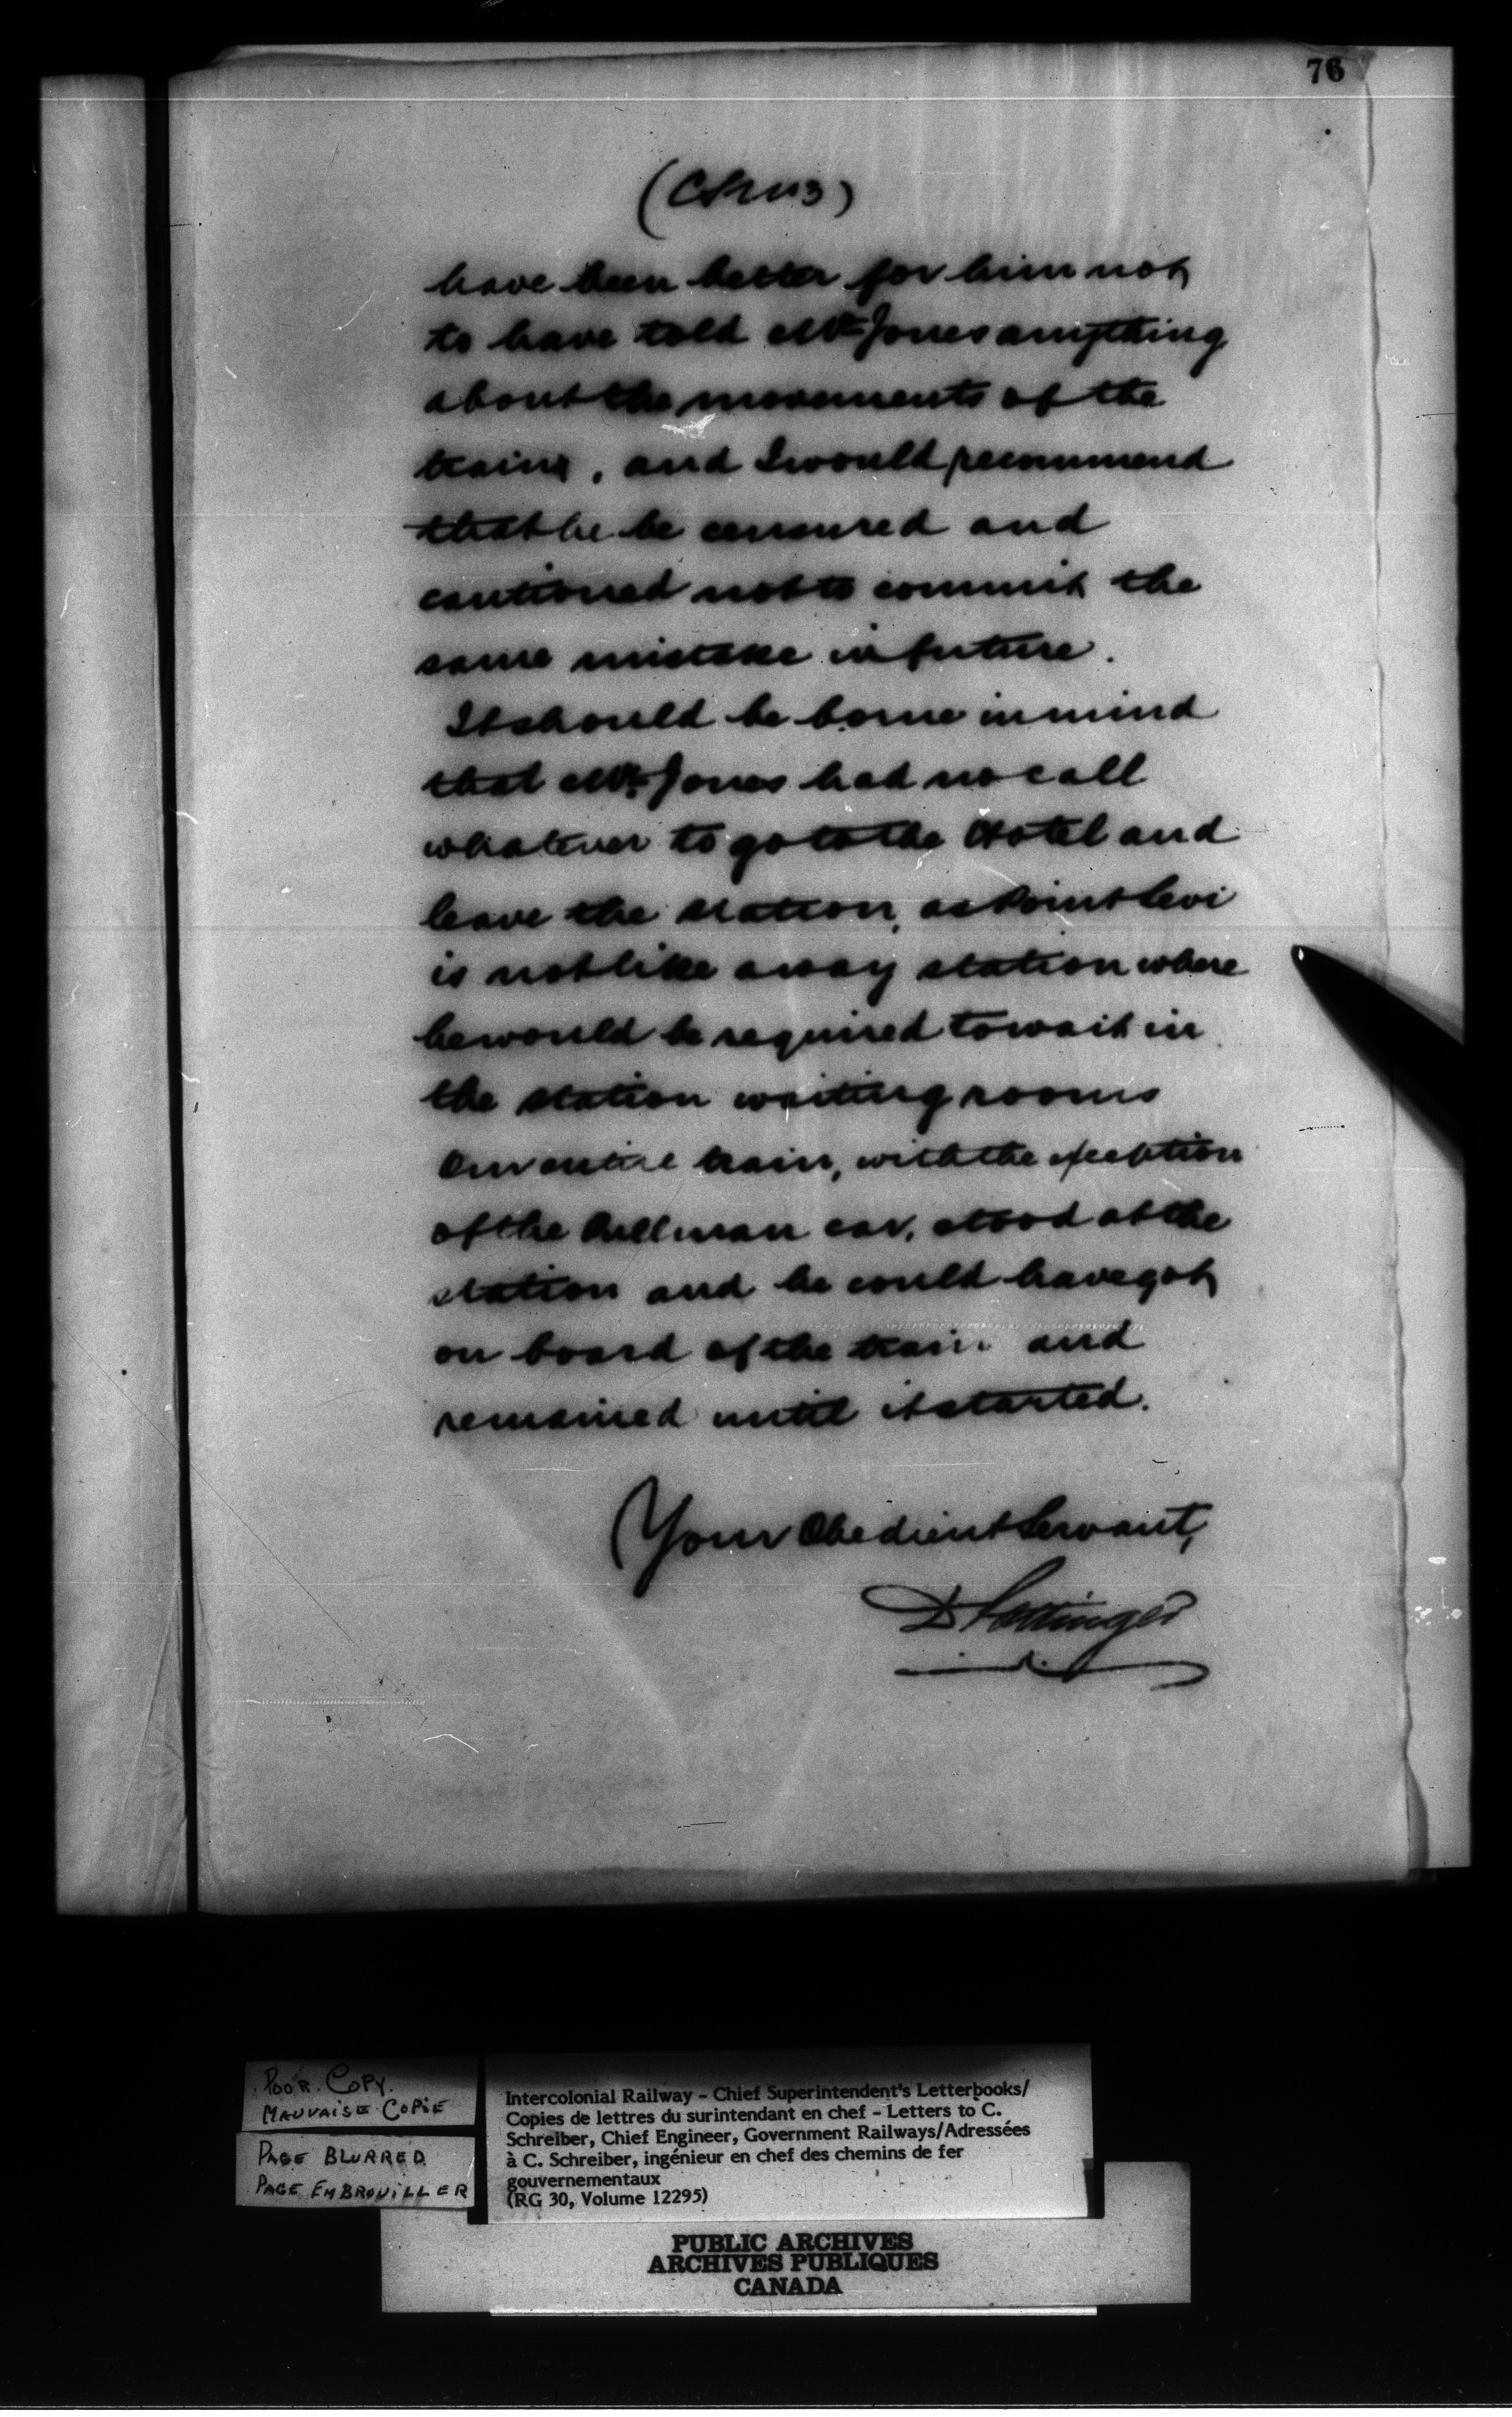 76
(CS No 3)
have been better for him not
to have told Mr Jones anything
about the movements of the
trains, and I would recommend
that he be censured and
cautioned not to commit the
same mistake in future.
It should be borne in mind
that Mr Jones had no call
whatever to go to the Hotel and
leave the station, as Point Levi
is not like a way station where
he would be required to wait in
the station waiting rooms
Our entire train, with the exception
of the Pullman car, stood at the
station and he could have got
on board of the train and
remained until it started.
Your Obedient Servant,
D Pottinger
POOR COPY.
MAUVAISE COPIE
PAGE BLURRED
PAGE EMBROUILLER
Intercolonial Railway - Chief Superintendent's Letterbooks/
Copies de lettres du surintendant en chef - Letters to C.
Schreiber, Chief Engineer, Government Railways/Adressées
à C. Schreiber, ingénieur en chef des chemins de fer
gouvernementaux
(RG 30, Volume 12295)
PUBLIC ARCHIVES
ARCHIVES PUBLIQUES
CANADA